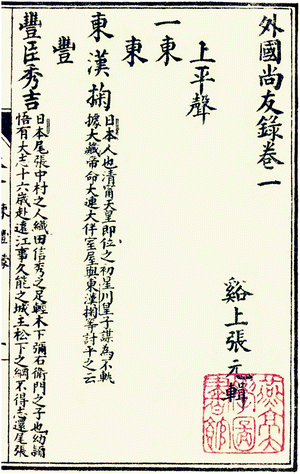 外國尚友錄卷一
谿上張元輯
上平聲
一東
東
東漢掬
日本人也清甯天皇即位之初星川皇子謀為不軌
據大藏帝命大連大伴室屋與東漢掬等討平之云
豐
豐臣秀吉
日本尾張中村之人織田信秀之足輕木下彌右衛門之子也幼穎
悟有大志十六歲赴遠江事久能之城主松下之綱不得志還尾張